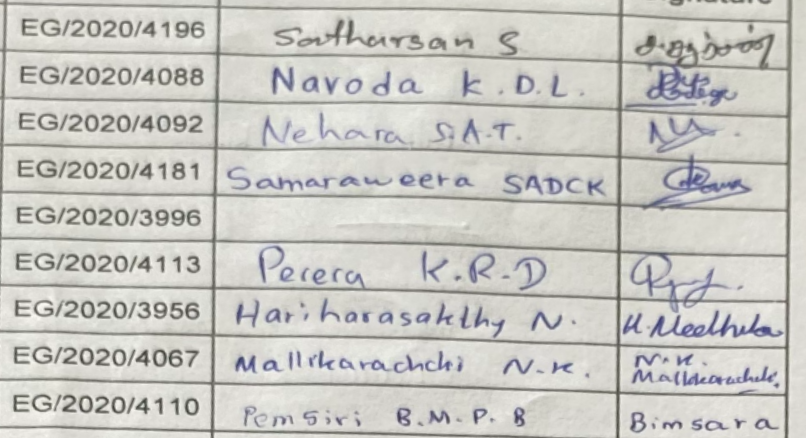 EG/2020/4196 Satharsan S
EG/2020/4088 Navoda K.D.L.
EG/2020/4092 Nehara S.A.T.
EG/2020/4181 Samaraweera SADCK
EG/2020/3996
EG/2020/4113 Perera K.R.D
EG/2020/3956 Hariharasakthy N.
EG/2020/4067 Mallikarachchi N.K. N.K.
EG/2020/4110 Pemsiri B.M.P.B Bimsara